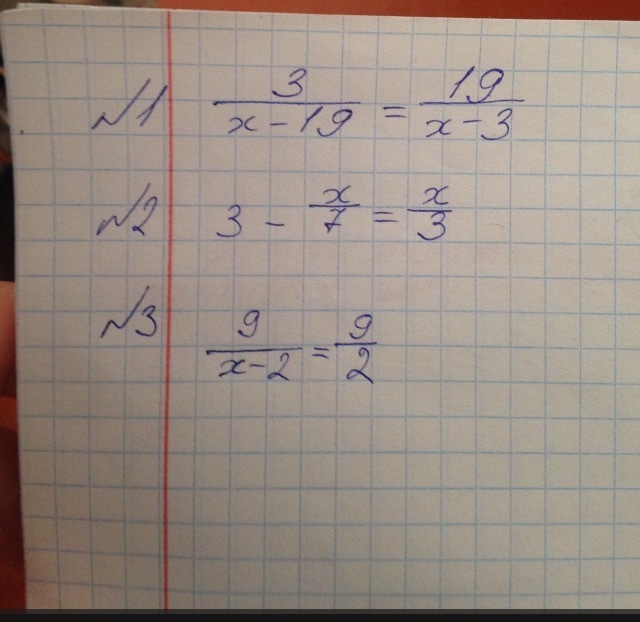 №1 3/(x-19) = 19/(x-3)
№2 3 - x/7 = x/3
№3 9/(x-2) = 9/2